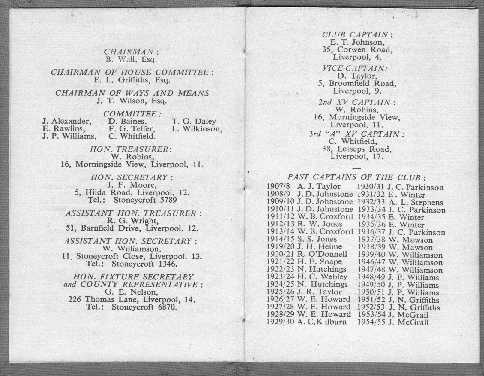 CHAIRMAN :
B. Wall, Esq.
CHAIRMAN OF HOUSE COMMITTEE :
E. L. Griffiths, Esq.
CHAIRMAN OF WAYS AND MEANS
J. T. Wilson, Esq.
COMMITTEE :
J. Alexander, D. Baines, T. G. Daley
E. Rawlins, F. G. Telfer, L. Wilkinson,
J. P. Williams, C. Whitfield.
HON. TREASURER:
W. Robins,
16, Morningside View, Liverpool, 11.
HON. SECRETARY :
J. F. Moore,
5, Hilda Road, Liverpool, 12.
Tel.: Stoneycroft 5789
ASSISTANT HON. TREASURER :
R. G. Wright,
51, Barnfield Drive, Liverpool, 12.
ASSISTANT HON. SECRETARY :
W. Williamson,
11, Stoneycroft Close, Liverpool, 13.
Tel.: Stoneycroft 1346.
HON. FIXTURE SECRETARY
and COUNTY REPRESENTATIVE :
G. E. Nelson,
226 Thomas Lane, Liverpool, 14.
Tel.: Stoneycroft 6870.
CLUB CAPTAIN :
E. T. Johnson,
35, Corwen Road,
Liverpool, 4.
VICE-CAPTAIN:
D. Taylor,
5, Broomfield Road,
Liverpool, 9.
2nd XV CAPTAIN :
W. Robins,
16, Morningside View,
Liverpool, 11.
3rd "A" XV CAPTAIN :
C. Whitfield,
Road,
Liverpool, 17.
PAST CAPTAINS OF THE CLUB :
1907/8 A. J. Taylor 1930/31 J. C. Parkinson
1908/9 J. D. Johnstone 1931/32 E. Winter
1909/10 J. D. Johnstone 1932/33 A. L. Stephens
1910/11 J. D. Johnstone 1933/34 J. C. Parkinson
1911/12 W. B. Croxford 1934/35 E. Winter
1912/13 R. W. Jones 1935/36 E. Winter
1913/14 W. B. Croxford 1936/37 J. C. Parkinson
1914/15 S. S. Jones 1937/38 W. Mawson
1919/20 J. H. 1938/39 W. Mawson
1920/21 R. O'Donnell 1939/40 W. Williamson
1921/22 H. P. Snape 1946/47 W. Williamson
1922/23 N. Hutchings 1947/48 W. Williamson
1923/24 H. C. 1948/49 J. P. Williams
1924/25 N. Hutchings 1949/50 J. P. Williams
1925/26 J. R. Taylor 1950/51 J. P. Williams
1926/27 W. E. Howard 1951/52 J. N. Griffiths
1927/28 W. E. Howard 1952/53 J. N. Griffiths
1928/29 W. E. Howard 1953/54 J. McGrail
1929/30 A. C. Kilburn 1954/55 J. McGrail